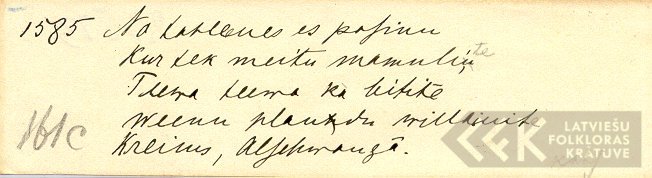 1585 No tahlenes es pasinu
Kur tek meitu mamuliņ te
Teewa teewa ka bitite
weenu plaukdu willainite
161c
Kreims, Alschwangā.
LATVIEŠU
FOLKLORAS
KRĀTUVE
LFK